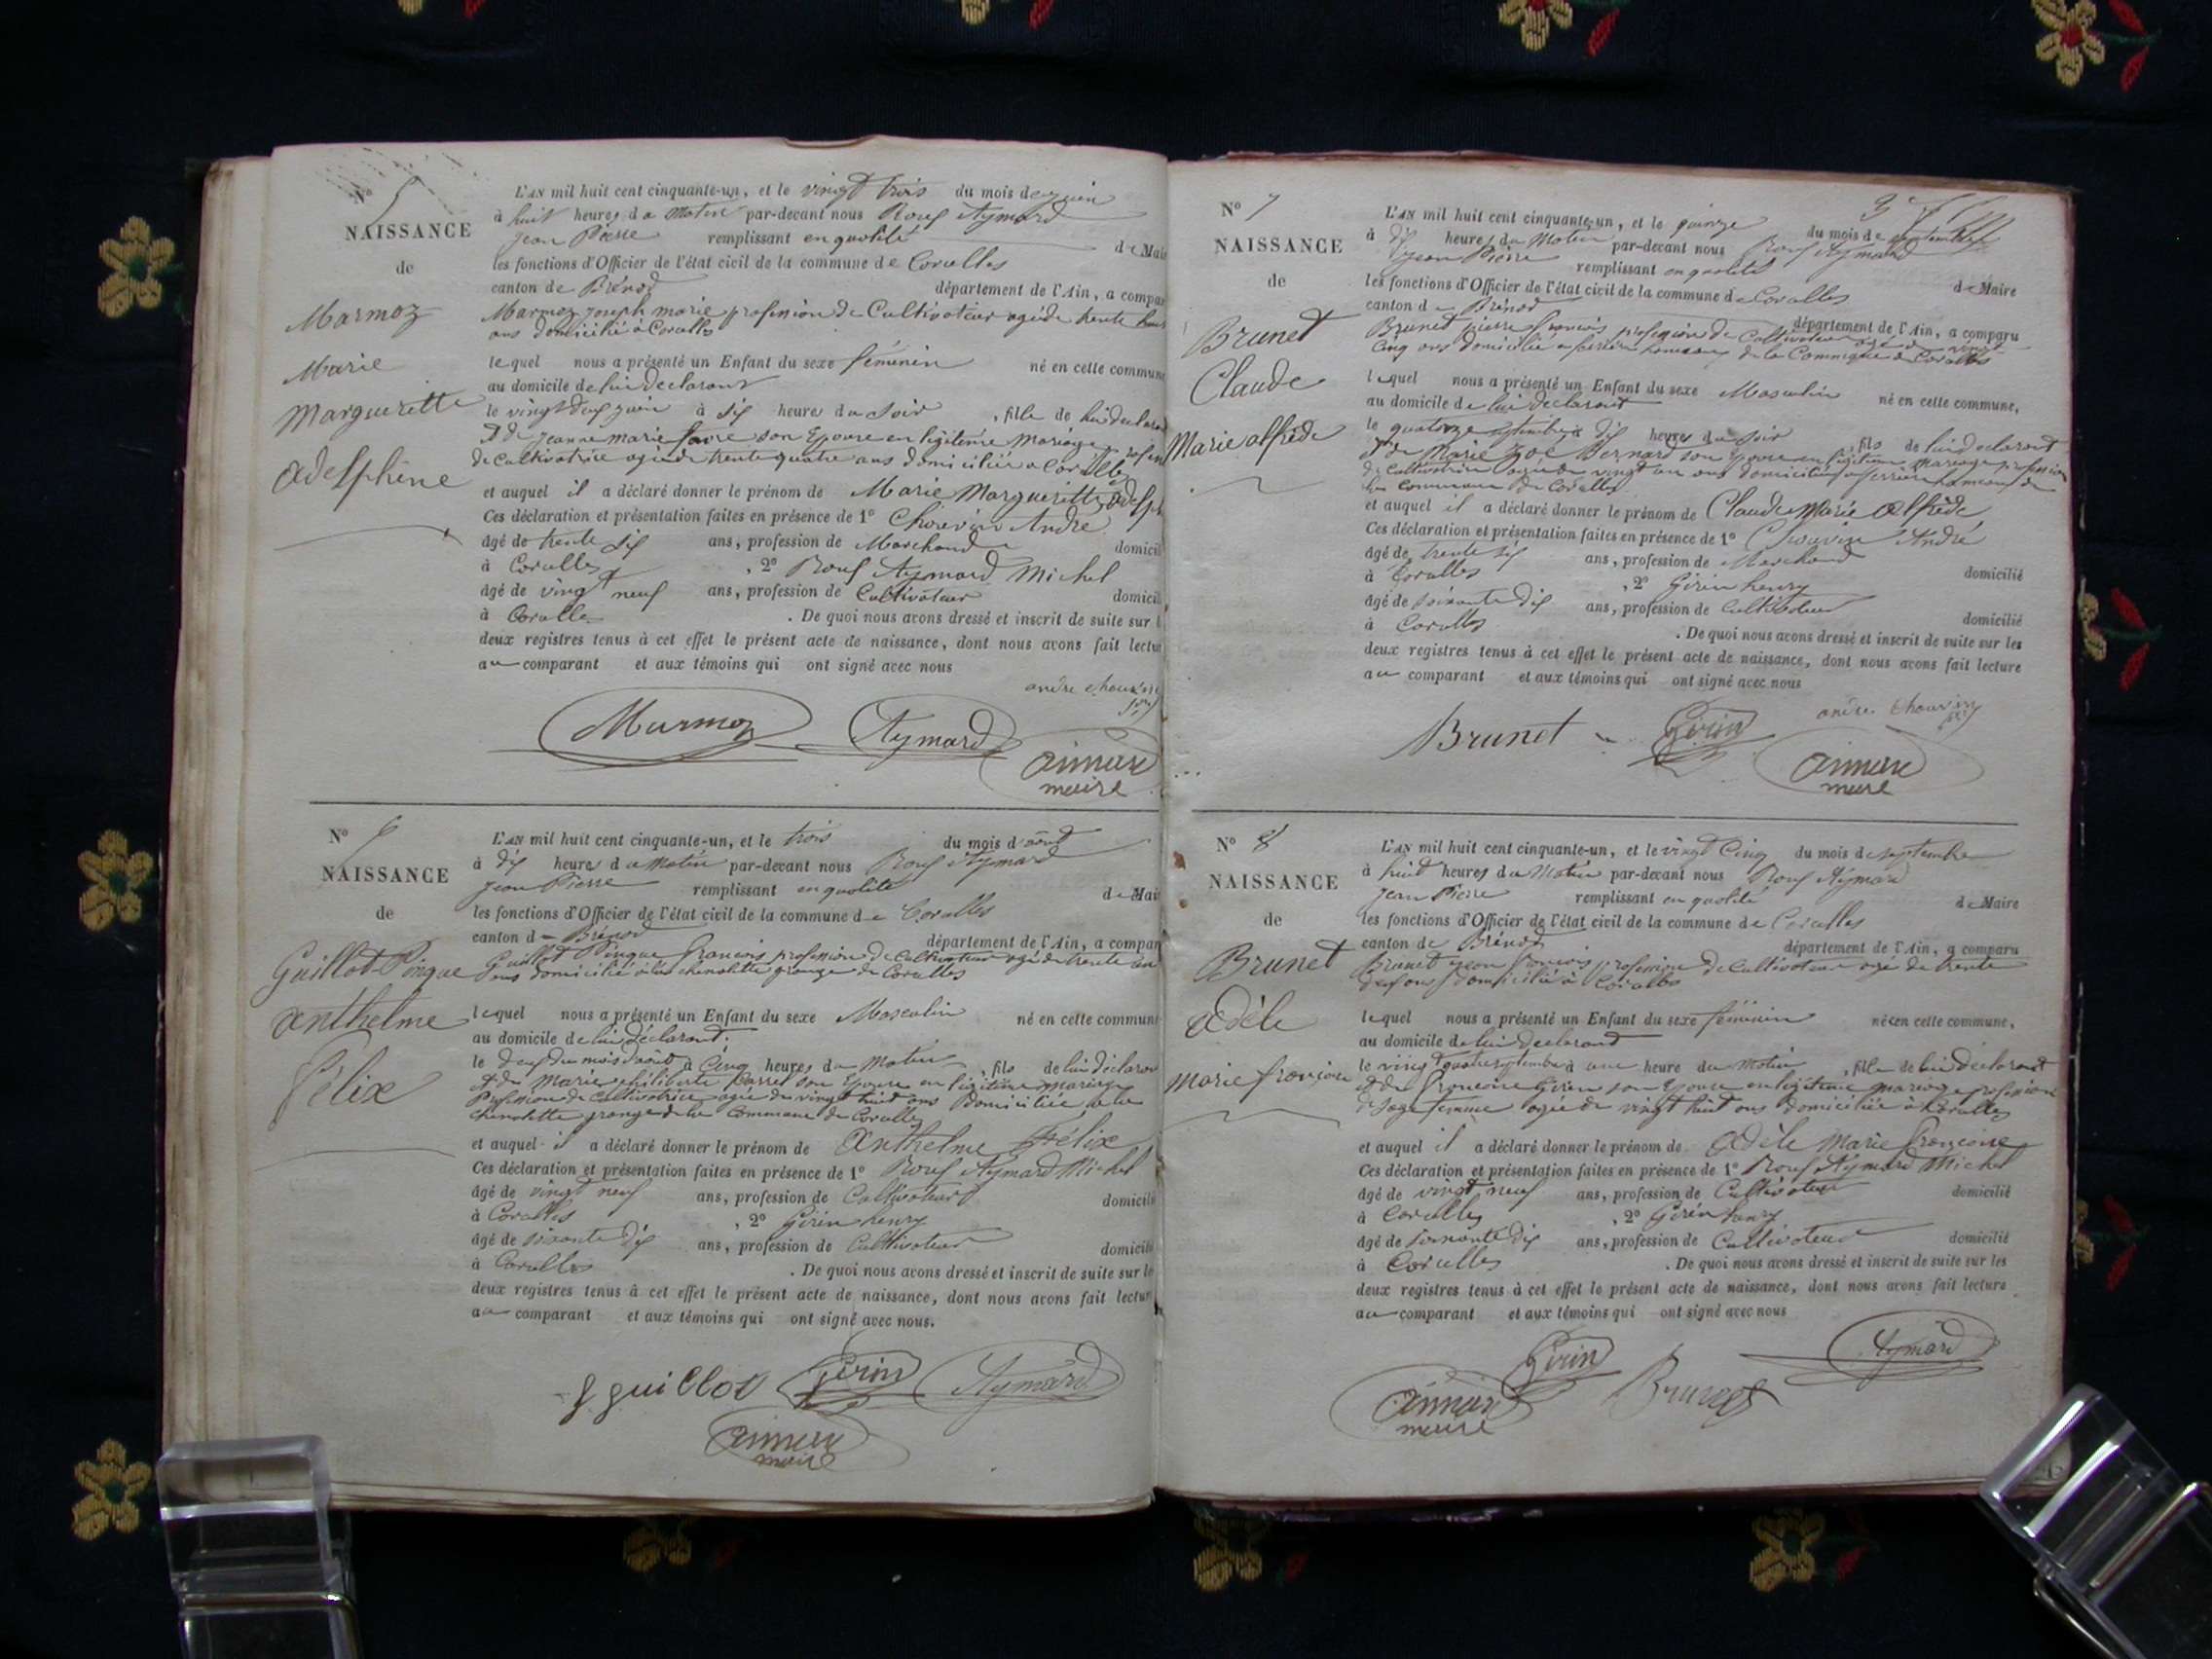 N° 5
NAISSANCE
de
Marmoz
Marie
Margueritte
adelphine
L'AN mil huit cent cinquante-un, et le vingt trois du mois de juin
à huit heures du Matin par-devant nous Rouf Aymard
Jean Pierre remplissant en qualité de Mai
les fonctions d'Officier de l'état civil de la commune de Corcelles
canton de Brénod département de l'Ain, a compar
Marmoz joseph marie profession de Cultivateur agé de trente huit
ans domicilié à Corcelles
lequel nous a présenté un Enfant du sexe féminin né en cette commune
au domicile de lui déclarant
le vingt deux juin à six heures du Soir , fille de lui déclarant
Et de jeanne marie favre son Epouse en légitime mariage
de cultivatrice agée de trente quatre ans domiciliée a Corcelles
et auquel il a déclaré donner le prénom de Marie Margueritte adelph
Ces déclaration et présentation faites en présence de 1° Chouvin André
âgé de trente six ans, profession de Marchand domicil
à Corcelles , 2° Rouf Aymard Michel
âgé de vingt neuf ans, profession de Cultivateur domicil
à Corcelles . De quoi nous avons dressé et inscrit de suite sur l
deux registres tenus à cet effet le présent acte de naissance, dont nous avons fait lectur
au comparant et aux témoins qui ont signé avec nous
andre chouvin
Marmoz Aymard
aimard
maire
N° 6
NAISSANCE
de
Guillot-Pingue
anthelme
félix
L'AN mil huit cent cinquante-un, et le trois du mois d'août
à dix heures du Matin par-devant nous Rouf Aymard
Jean Pierre remplissant en qualité de Mai
les fonctions d'Officier de l'état civil de la commune de Corcelles
canton de Brénod département de l'Ain, a compar
Guillot Pingue françois profession de Cultivateur agé de trente un
ans domicilié à la chenolette grange de Corcelles
lequel nous a présenté un Enfant du sexe Masculin né en cette commune
au domicile de lui déclarant.
le deux du mois d'août à Cinq heures du Matin , fils de lui déclarant
et de Marie son Epouse en légitime mariage
Profession de Cultivatrice agée de vingt huit ans Domiciliée a la
chenolette grange de la Commune de Corcelles
et auquel il a déclaré donner le prénom de anthelme félix
Ces déclaration et présentation faites en présence de 1° Rouf Aymard Michel
âgé de vingt neuf ans, profession de Cultivateur domicili
à Corcelles , 2° Girin henry
âgé de soixante dix ans, profession de Cultivateur domicili
à Corcelles . De quoi nous avons dressé et inscrit de suite sur le
deux registres tenus à cet effet le présent acte de naissance, dont nous avons fait lectur
au comparant et aux témoins qui ont signé avec nous.
f guillot Girin Aymard
aimard
maire
N° 7
NAISSANCE
de
Brunet
Claude
Marie alfrède
3
L'AN mil huit cent cinquante-un, et le quinze du mois de septembre
à dix heures du Matin par-devant nous Rouf Aymard
Jean Pierre remplissant en qualité de Maire
les fonctions d'Officier de l'état civil de la commune de Corcelles
canton de Brénod département de l'Ain, a comparu
Brunet pierre françois profession de Cultivateur agé de vingt
Cinq ans domicilié a ferrière hameau de la Commune de Corcelles
lequel nous a présenté un Enfant du sexe Masculin né en cette commune,
au domicile de lui déclarant
le quatorze septembre à dix heures du soir , fils de lui déclarant
et de Marie Zoé Bernard son Epouse en légitime mariage profession
de Cultivatrice agée de vingt un ans domiciliée a ferrière hameau de
la Commune de Corcelles
et auquel il a déclaré donner le prénom de Claude Marie alfrède
Ces déclaration et présentation faites en présence de 1° Chouvin André
âgé de trente six ans, profession de Marchand domicilié
à Corcelles , 2° Girin henry
âgé de soixante dix ans, profession de Cultivateur domicilié
à Corcelles . De quoi nous avons dressé et inscrit de suite sur les
deux registres tenus à cet effet le présent acte de naissance, dont nous avons fait lecture
au comparant et aux témoins qui ont signé avec nous
andre chouvin
Brunet Girin
aimard
maire
N° 8
NAISSANCE
de
Brunet
adèle
marie françoise
L'AN mil huit cent cinquante-un, et le vingt Cinq du mois de septembre
à huit heures du Matin par-devant nous Rouf Aymard
Jean Pierre remplissant en qualité de Maire
les fonctions d'Officier de l'état civil de la commune de Corcelles
canton de Brénod département de l'Ain, a comparu
Brunet jean françois profession de Cultivateur agé de trente
deux ans domicilié à Corcelles
lequel nous a présenté un Enfant du sexe féminin née en cette commune,
au domicile de lui déclarant
le vingt quatre septembre à une heure du matin , fille de lui déclarant
et de françoise Girin son Epouse en légitime mariage profession
de sage femme agée de vingt huit ans domiciliée à Corcelles
et auquel il a déclaré donner le prénom de adèle marie françoise
Ces déclaration et présentation faites en présence de 1° Rouf Aymard Michel
âgé de vingt neuf ans, profession de Cultivateur domicilié
à Corcelles , 2° Girin henry
âgé de soixante dix ans, profession de Cultivateur domicilié
à Corcelles . De quoi nous avons dressé et inscrit de suite sur les
deux registres tenus à cet effet le présent acte de naissance, dont nous avons fait lecture
au comparant et aux témoins qui ont signé avec nous
Girin Aymard
aimard Brunet
maire